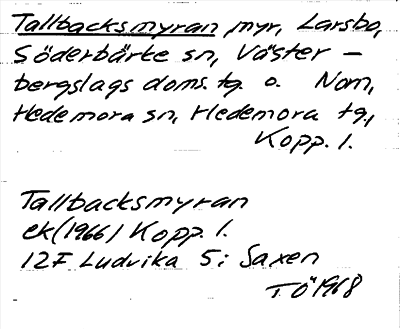 Tallbacksmyran myr, Larsbo,
Söderbärke sn, Väster-
bergslags doms. tg. o. Norn,
Hedemora sn, Hedemora tg.,
Kopp. l.
Tallbacksmyran
ek (1966) Kopp. l.
12F Ludvika 5i Saxen
TÖ 1968